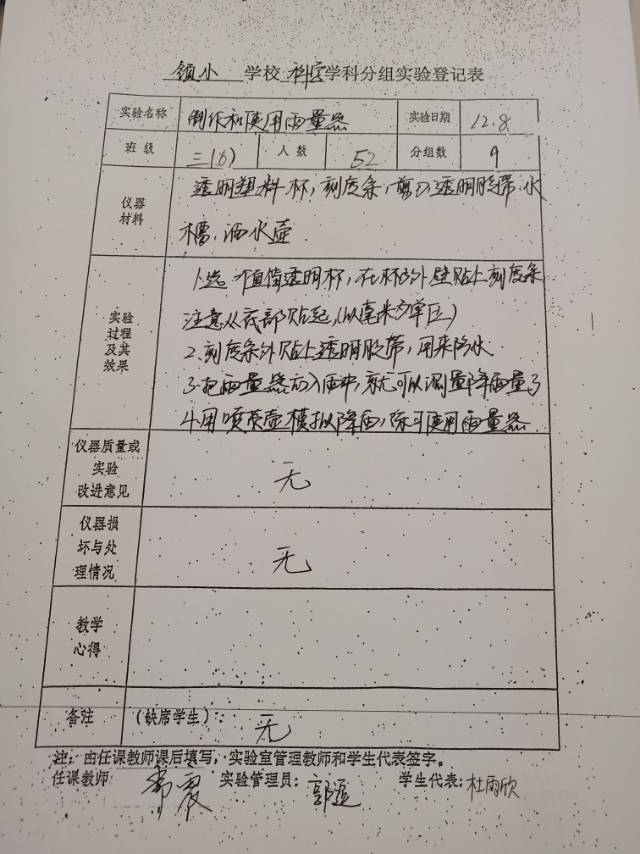 镇小 学校 科学 学科分组实验登记表
实验名称 制作和使用雨量器 实验日期 12.8
班级 三(6) 人数 52 分组数 9
仪器材料 透明塑料杯,刻度条,剪刀,透明胶带,水
槽,洒水壶
实验过程及其效果 1.选 直筒透明杯,在杯的外壁贴上刻度条
注意从底部贴起,(以毫米为单位)
2.刻度条外贴上透明胶带,用来防水
3.把雨量器放入雨中,就可以测量降雨量了
4.用喷壶模拟降雨,练习使用雨量器
仪器质量或实验改进意见 无
仪器损坏与处理情况 无
教学心得
备注 (缺席学生): 无
注:由任课教师课后填写,实验室管理教师和学生代表签字。
任课教师: 霞 实验管理员: 郭 学生代表:杜雨欣